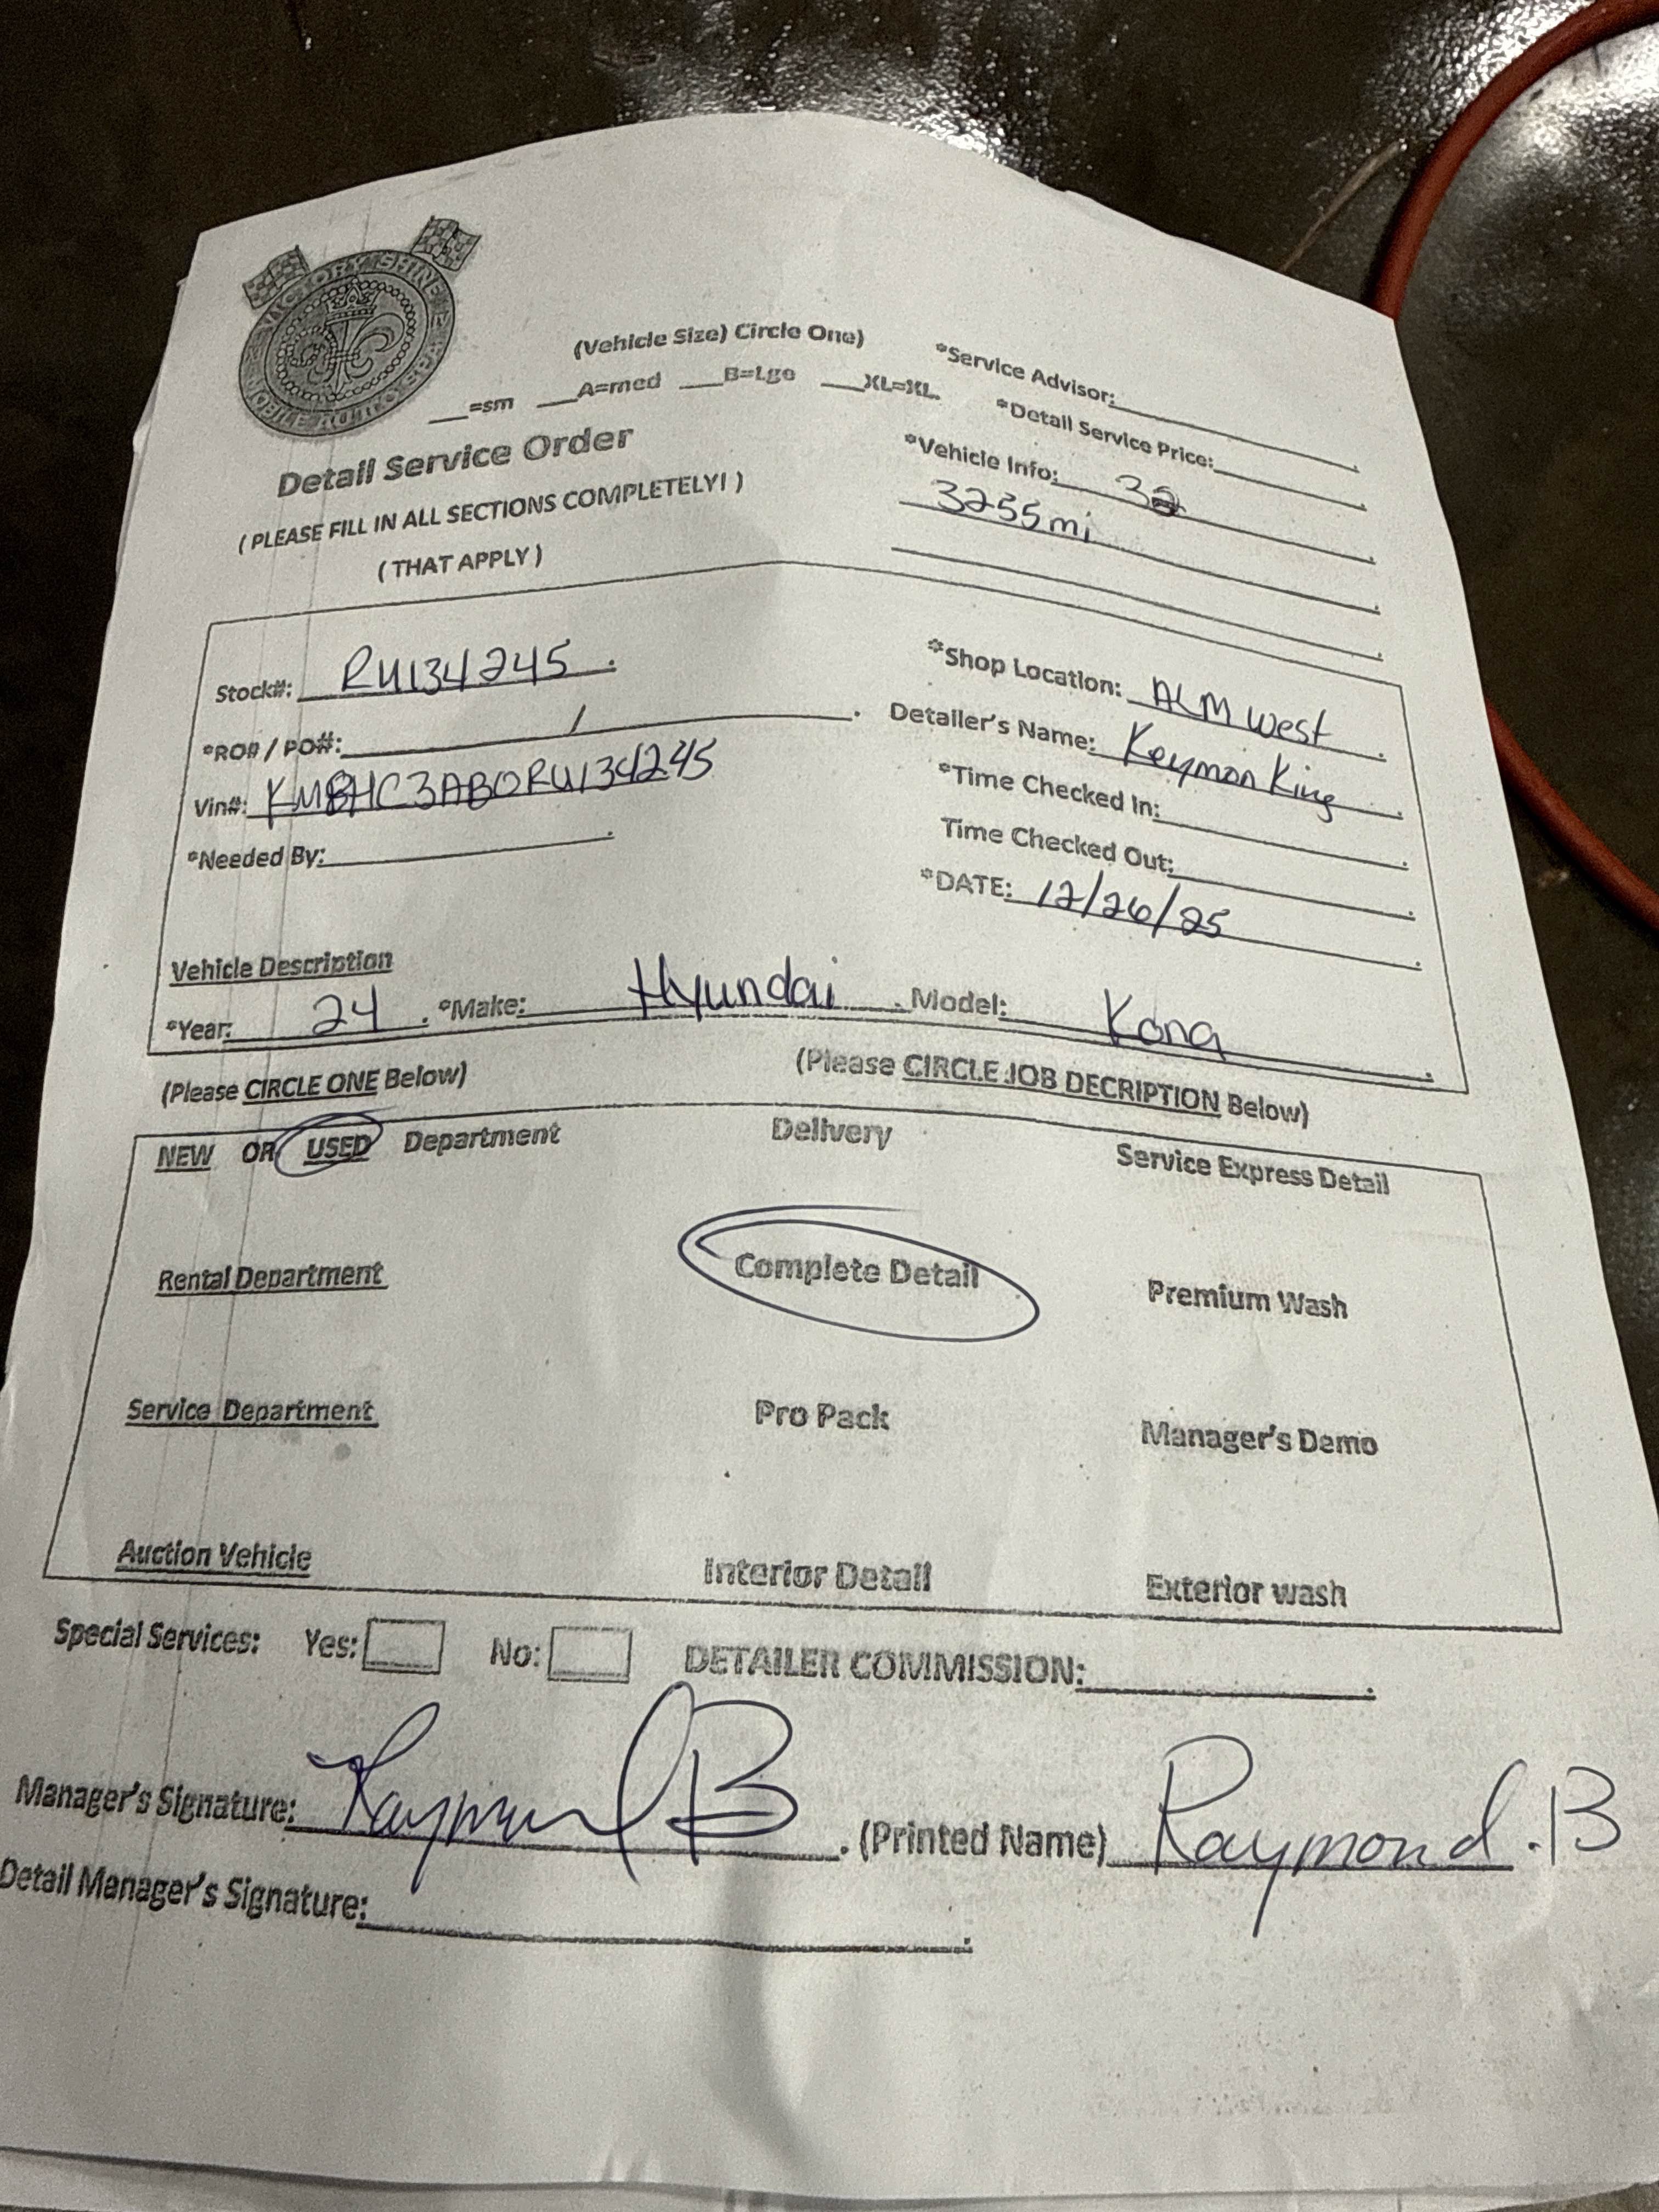 VICTORY SHINE
MOBILE AUTO
(Vehicle Size) Circle One)
___=sm ___A=med ___B=Lge ___XL=XL.
*Service Advisor:
*Detail Service Price:
*Vehicle Info: 32
3255mi
Detail Service Order
( PLEASE FILL IN ALL SECTIONS COMPLETELY! )
( THAT APPLY )
Stock#: RU134245.
*RO# / PO#: /.
Vin#: KM8HC3AB0RU134245
*Needed By:
*Shop Location: ALM West
Detailer's Name: Keymon King
*Time Checked In:
Time Checked Out:
*DATE: 12/26/25
Vehicle Description
*Year: 24. *Make: Hyundai. Model: Kona
(Please CIRCLE ONE Below) (Please CIRCLE JOB DECRIPTION Below)
NEW OR USED Department Delivery Service Express Detail
Rental Department Complete Detail Premium Wash
Service Department Pro Pack Manager's Demo
Auction Vehicle Interior Detail Exterior wash
Special Services: Yes: No: DETAILER COMMISSION:
Manager's Signature: Raymond B. (Printed Name) Raymond.B
Detail Manager's Signature: